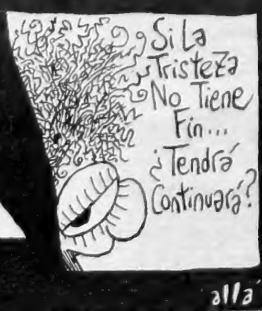 Si La
Tristeza
No Tiene
Fin...
¿Tendrá
Continuará?
alla